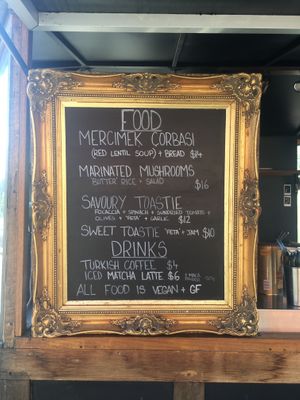 FOOD
MERCIMEK CORBASI
(RED LENTIL SOUP) + BREAD $14
MARINATED MUSHROOMS
"BUTTER" RICE + SALAD
$16
SAVOURY TOASTIE
FOCACCIA + SPINACH + SUNDRIED TOMATO +
OLIVES + "FETA" + GARLIC $12
SWEET TOASTIE "FETA" + JAM $10
DRINKS
TURKISH COFFEE $4
ICED MATCHA LATTE $6
ALL FOOD IS VEGAN + GF